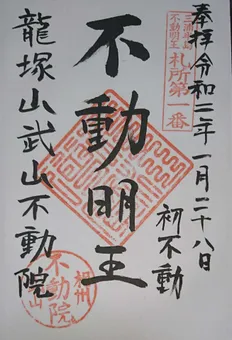 奉拝 令和二年一月二十八日
初不動
三浦半島
不動明王
札所第一番
不動明王
龍塚山武山不動院
相州
不動院